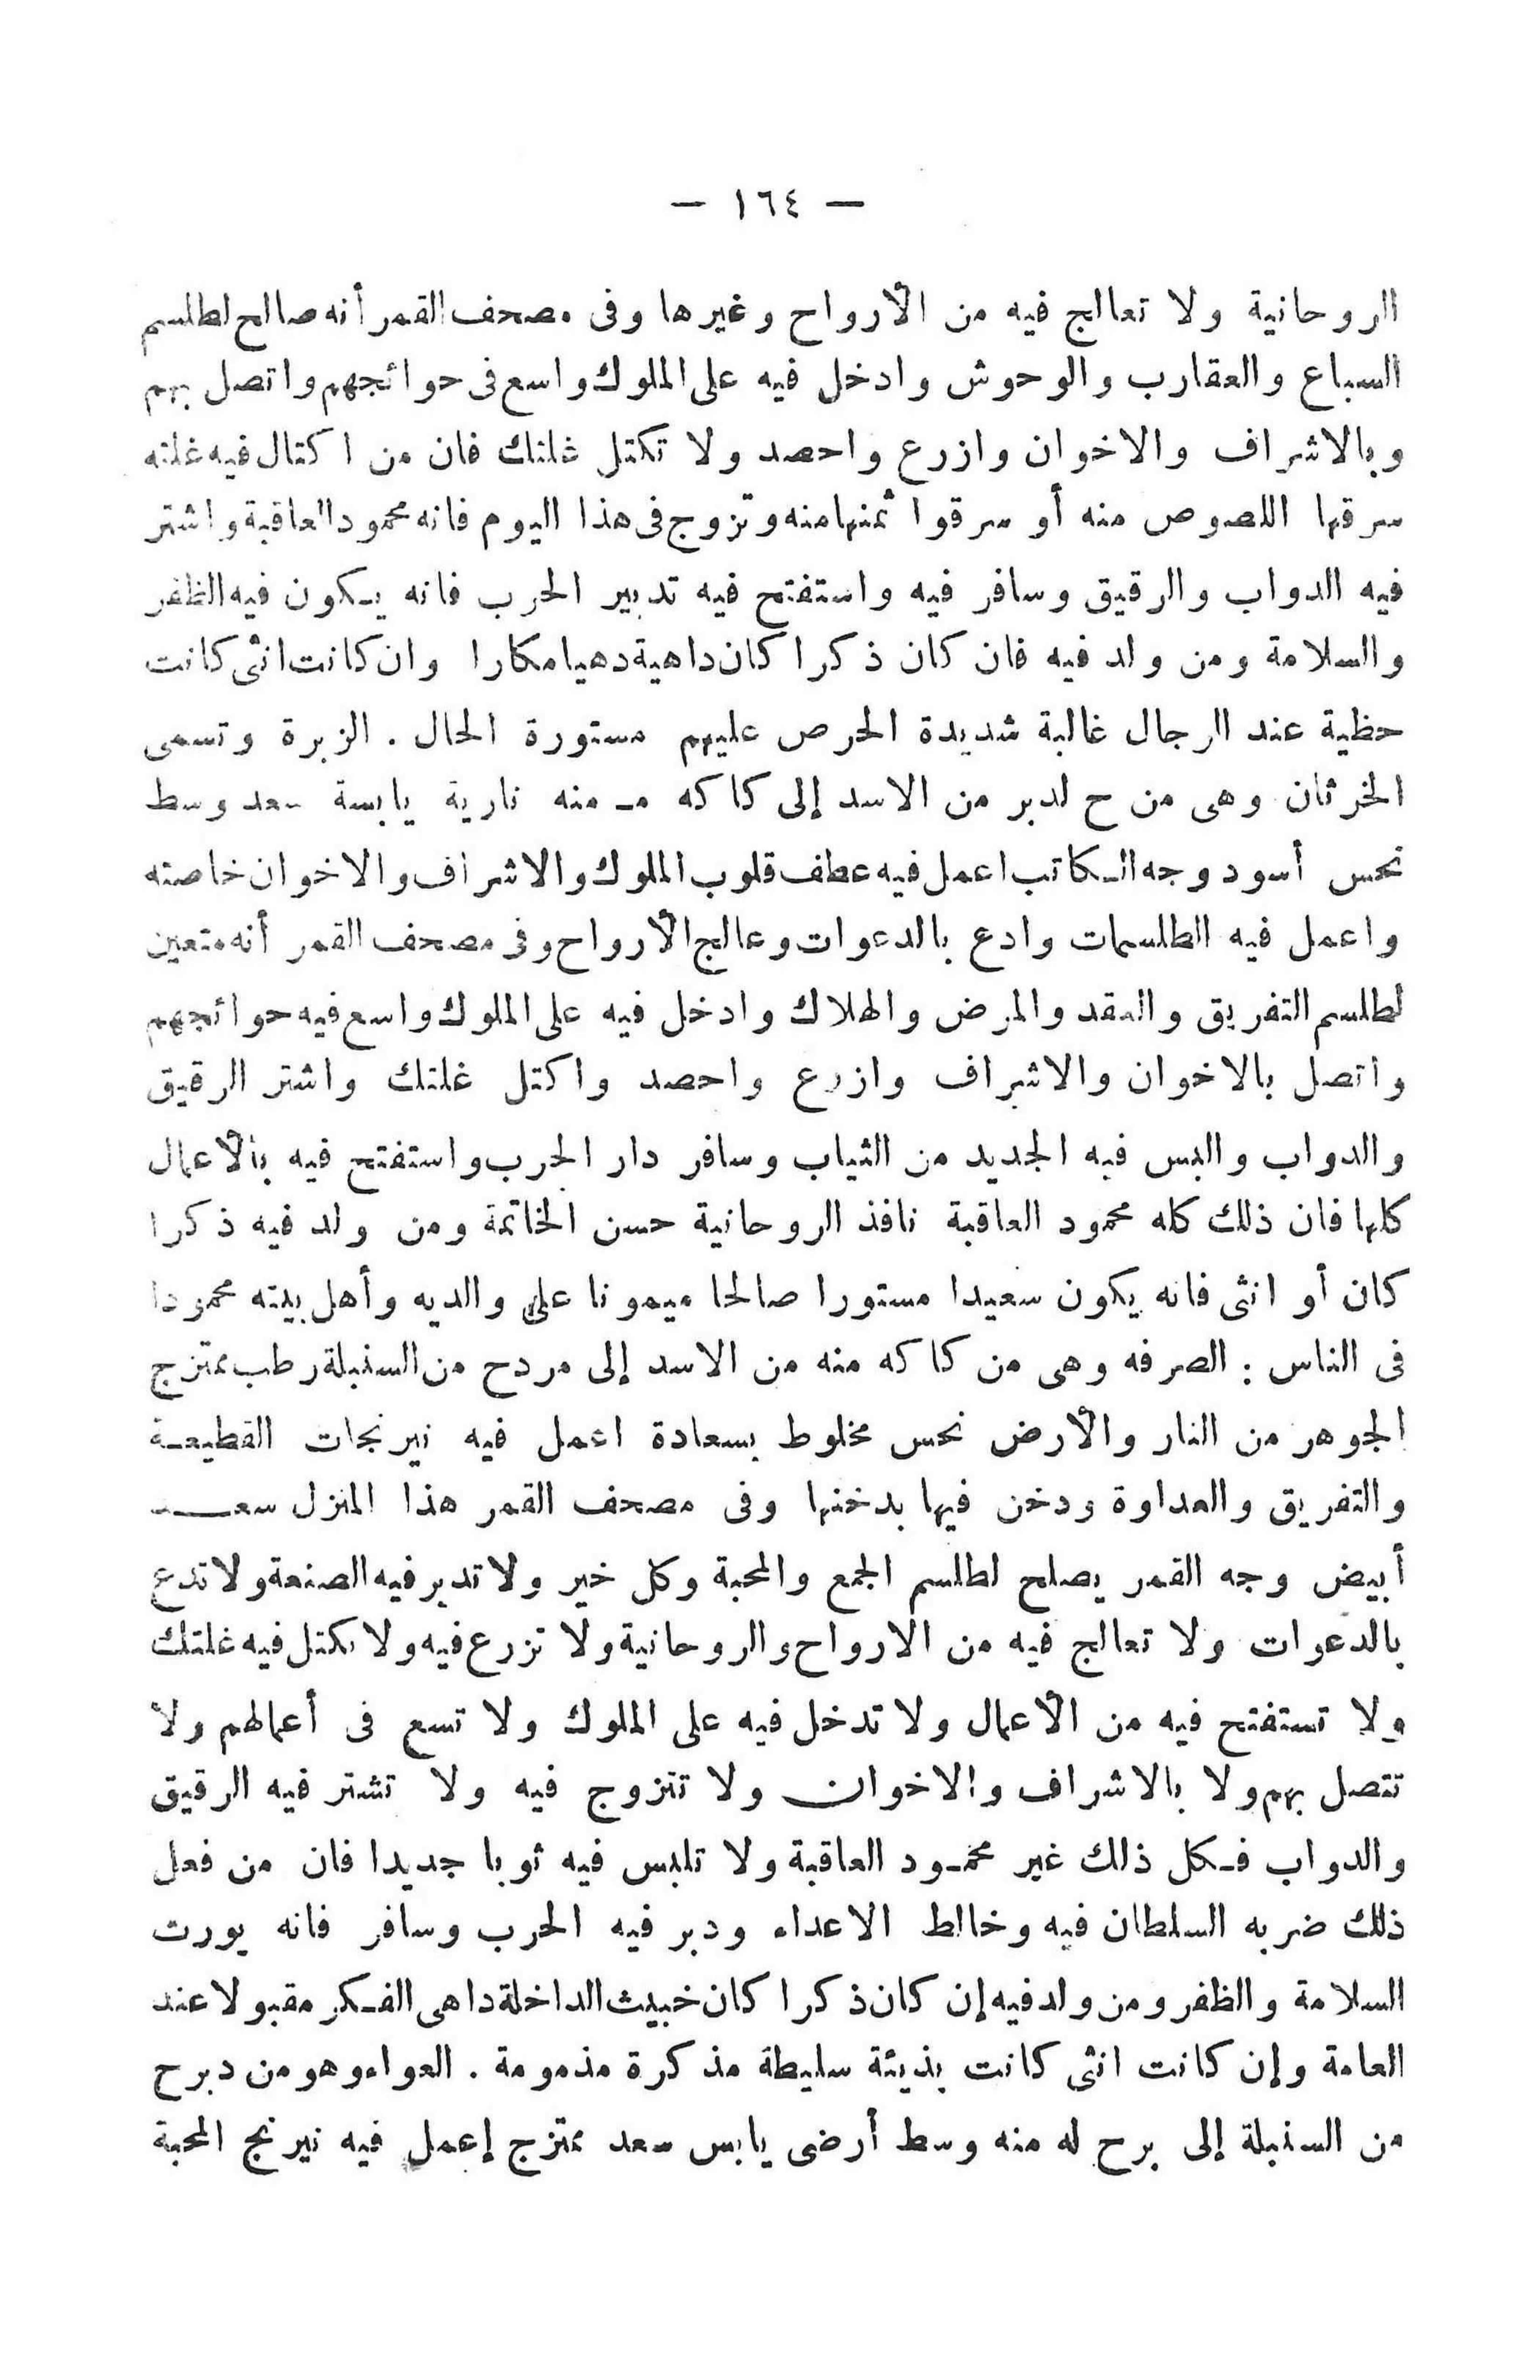 — ١٦٤ —
الروحانية ولا تعالج فيه من الأرواح وغيرها وفى مصحف القمر أنه صالح لطلسم
السباع والعقارب والوحوش وادخل فيه على الملوك واسع فى حوائجهم واتصل بهم
وبالاشراف والاخوان وازرع واحصد ولا تكتل غلتك فان من اكتال فيه غلته
سرقها اللصوص منه أو سرقوا ثمنها منه وتزوج فى هذا اليوم فانه محمود العاقبة واشتر
فيه الدواب والرقيق وسافر فيه واستفتح فيه تدبير الحرب فانه يـكون فيه الظفر
والسلامة ومن ولد فيه فان كان ذكرا كان داهية دهيا مكارا وان كانت انثى كانت
حظية عند الرجال غالبة شديدة الحرص عليهم مستورة الحال . الزبرة وتسمى
الخرثان وهى من ح لدبر من الاسد إلى كا كه مـ منه نارية يابسة سعد وسط
نحس أسود وجه الـكاتب اعمل فيه عطف قلوب الملوك والاشراف والاخوان خاصته
واعمل فيه الطلسمات وادع بالدعوات وعالج الأرواح وفى مصحف القمر أنه متعين
لطلسم التفريق والعقد والمرض والهلاك وادخل فيه على الملوك واسع فيه حوائجهم
واتصل بالاخوان والاشراف وازرع واحصد واكتل غلتك واشتر الرقيق
والدواب والبس فيه الجديد من الثياب وسافر دار الحرب واستفتح فيه بالأعمال
كلها فان ذلك كله محمود العاقبة نافذ الروحانية حسن الخاتمة ومن ولد فيه ذكرا
كان أو انثى فانه يكون سعيدا مستورا صالحا ميمونا على والديه وأهل بيته محمودا
فى الناس : الصرفه وهى من كا كه منه من الاسد إلى مردح من السنبلة رطب ممتزج
الجوهر من النار والأرض نحس مخلوط بسعادة اعمل فيه نيرنجات القطيعـة
والتفريق والعداوة ودخن فيها بدخنها وفى مصحف القمر هذا المنزل سعـــد
أبيض وجه القمر يصلح لطلسم الجمع والمحبة وكل خير ولا تدبر فيه الصنعة ولا تدع
بالدعوات ولا تعالج فيه من الارواح والروحانية ولا تزرع فيه ولا تكتل فيه غلتك
ولا تستفتح فيه من الأعمال ولا تدخل فيه على الملوك ولا تسع فى أعمالهم ولا
تتصل بهم ولا بالاشراف والاخوان ولا تتزوج فيه ولا تشتر فيه الرقيق
والدواب فـكل ذلك غير محمـود العاقبة ولا تلبس فيه ثوبا جديدا فان من فعل
ذلك ضربه السلطان فيه وخالط الاعداء ودبر فيه الحرب وسافر فانه يورث
السلامة والظفر ومن ولد فيه إن كان ذكرا كان خبيث الداخلة داهى الفـكر مقبولا عند
العامة وإن كانت انثى كانت بذيئة سليطة مذكرة مذمومة . العواء وهو من دبرح
من السنبلة إلى برح له منه وسط أرضى يابس سعد ممتزج إعمل فيه نيرنج المحبة